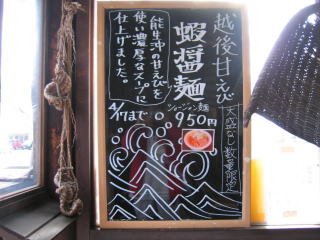 越後甘えび
蝦醤麺
ショージャン麺
950円
大盛なし 数量限定
能生沖の甘えびを
使い濃厚なスープに
仕上げました。
4/17まで